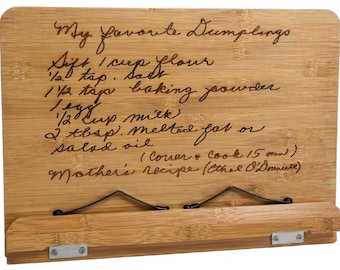 My favorite Dumplings
Sift 1 cup flour
1/2 tsp. salt
1 1/2 tsp baking powder
1 egg
1/2 cup milk
2 tbsp melted fat or
salad oil
(cover & cook 15 min)
Mother's recipe (Ethel O'Donnell)